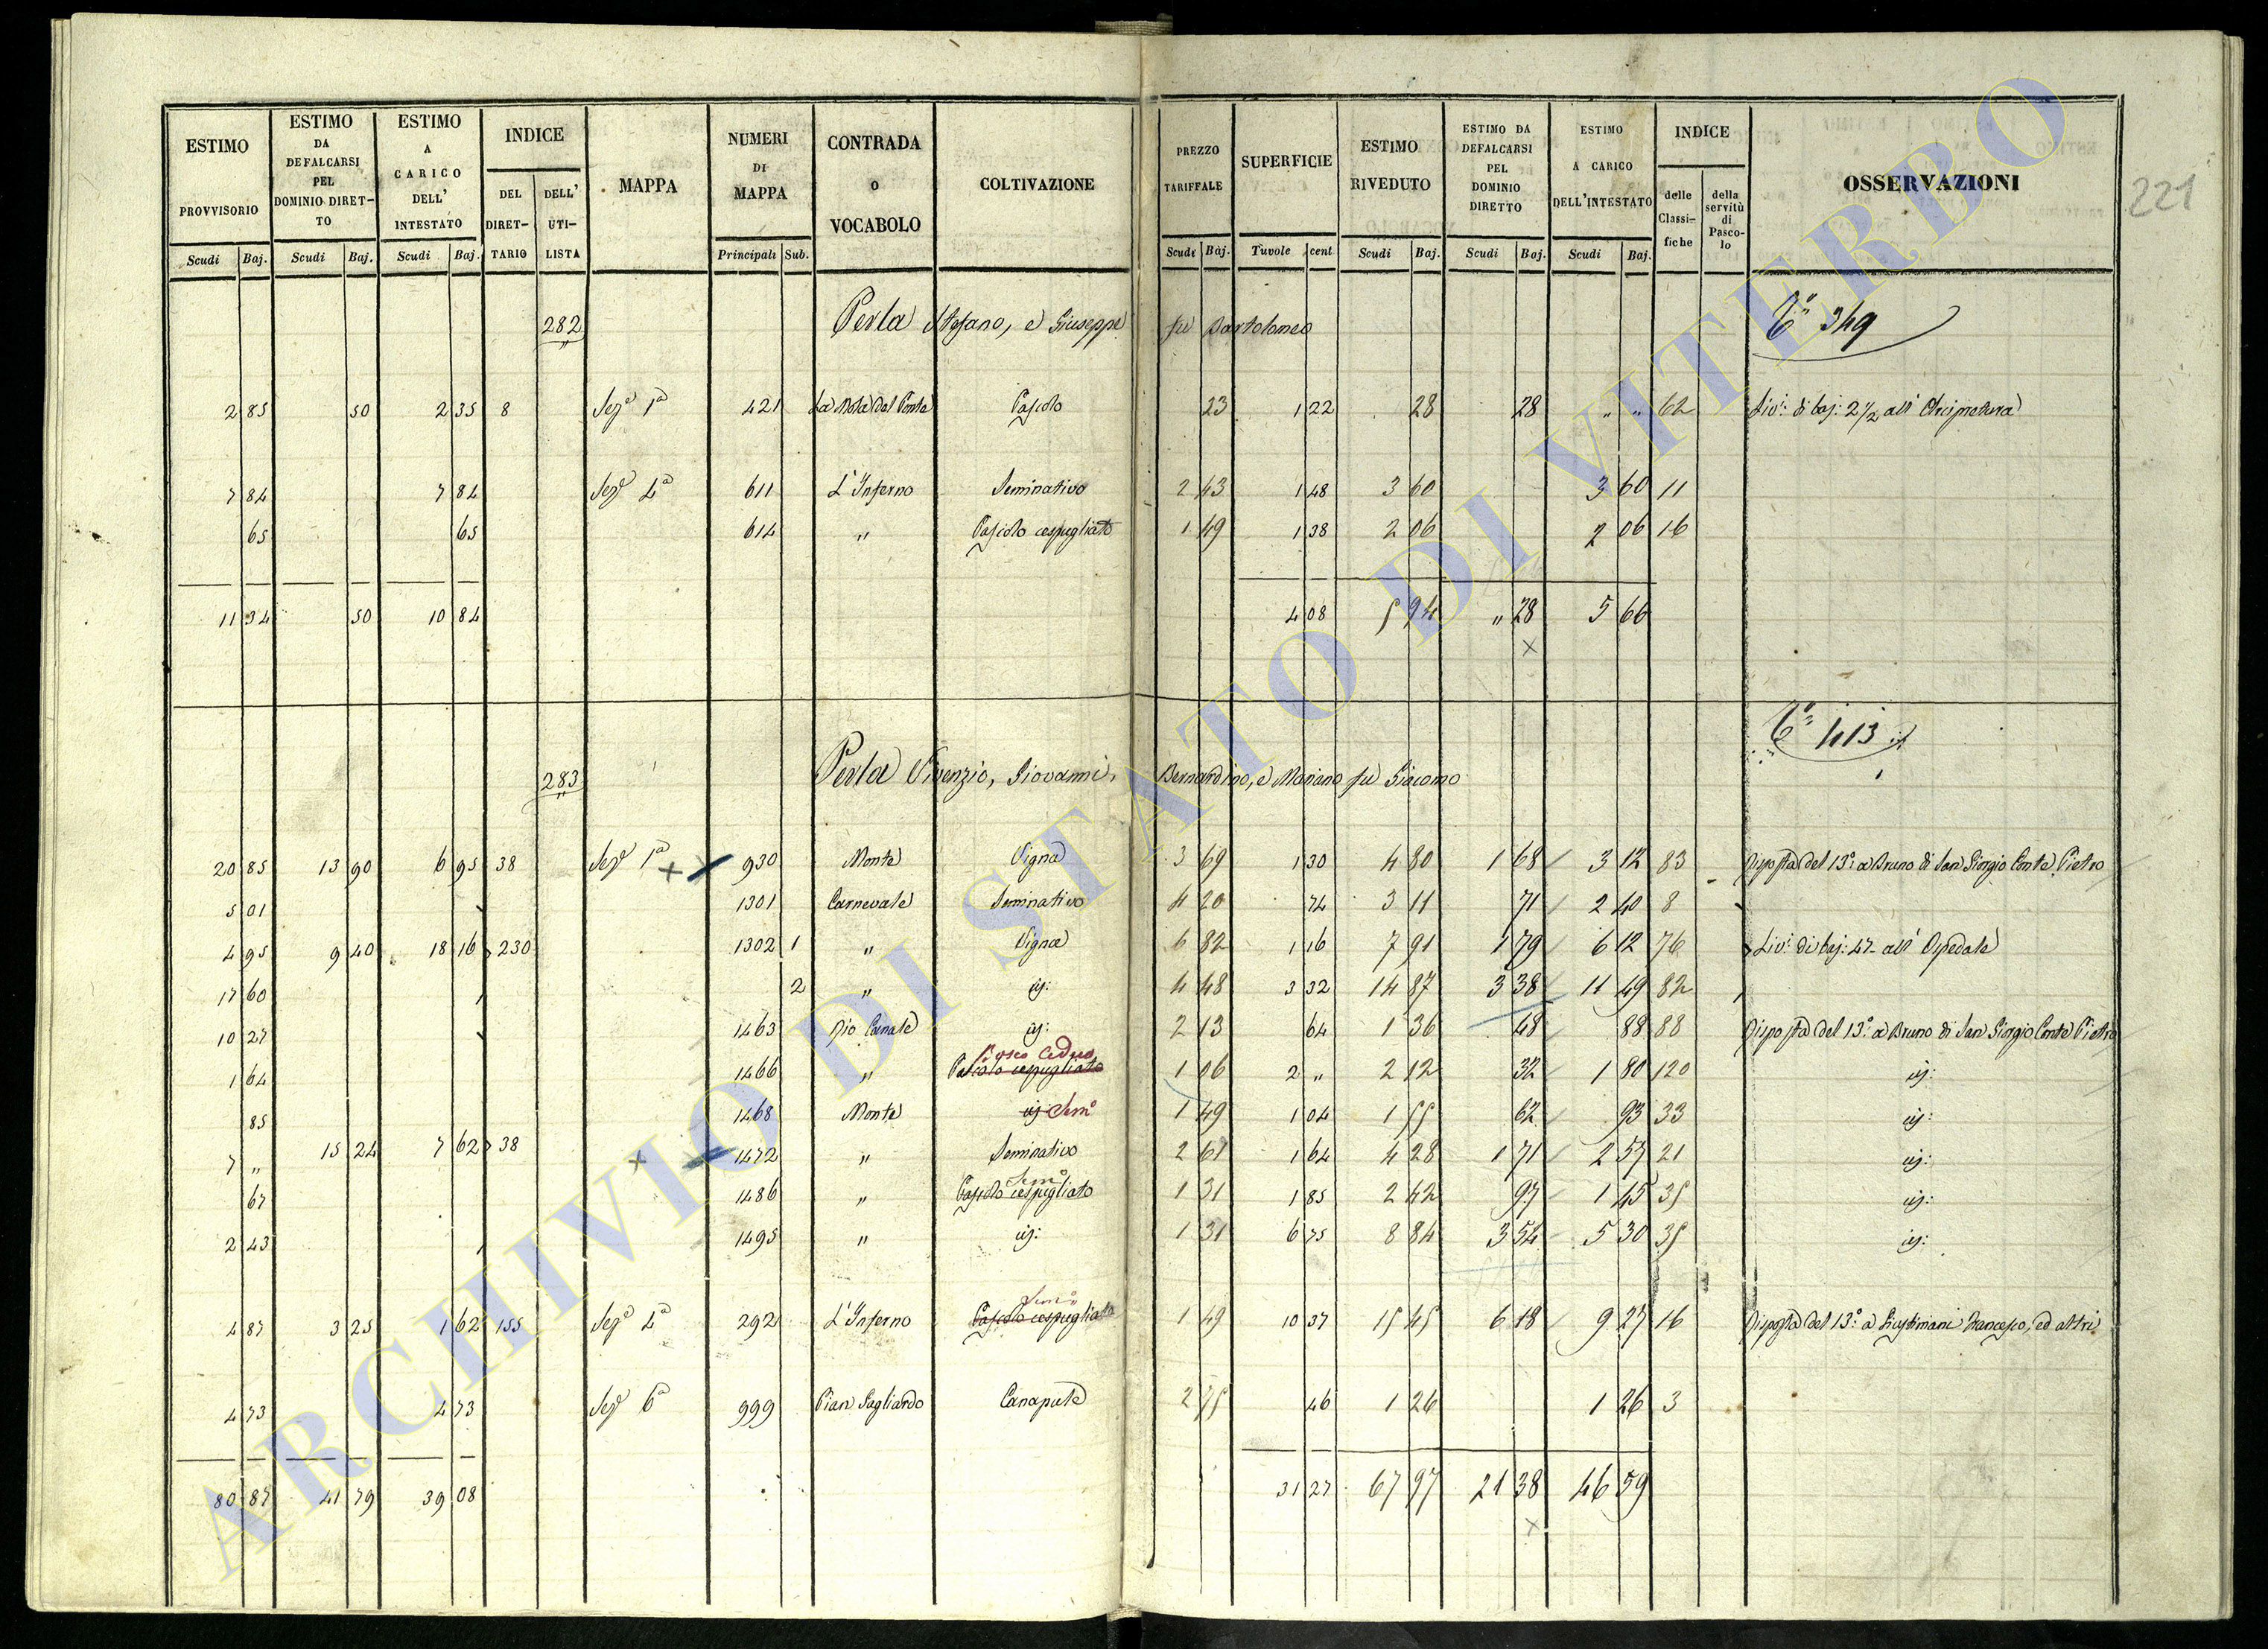 221
ESTIMO PROVVISORIO | ESTIMO DA DEFALCARSI PEL DOMINIO DIRETTO | ESTIMO A CARICO DELL' INTESTATO | INDICE | MAPPA | NUMERI DI MAPPA | CONTRADA o VOCABOLO | COLTIVAZIONE | PREZZO TARIFFALE | SUPERFICIE | ESTIMO RIVEDUTO | ESTIMO DA DEFALCARSI PEL DOMINIO DIRETTO | ESTIMO A CARICO DELL'INTESTATO | INDICE | OSSERVAZIONI
Scudi Baj. | Scudi Baj. | Scudi Baj. | DEL DIRETTARIO | DELL' UTILISTA | Principali Sub. | Scudi Baj. | Tavole cent | Scudi Baj. | Scudi Baj. | Scudi Baj. | delle Classifiche | della servitù di Pascolo
282 Perla Stefano, e Giuseppe fu Bartolomeo 349
2 85 | 50 | 2 35 | 8 | Sez.e 1a | 421 | La Mola del Ponte | Pascolo | 23 | 1 22 | 28 | 28 | " " | 62 | Liv.o di baj: 2 1/2 all' Arcipretura
7 84 | 7 84 | Sez.e 4a | 611 | L'Inferno | Seminativo | 2 43 | 1 48 | 3 60 | 3 60 | 11
65 | 65 | 614 | " | Pascolo cespugliato | 1 49 | 1 38 | 2 06 | 2 06 | 16
11 34 | 50 | 10 84 | 4 08 | 5 94 | " 28 | 5 66
×
413
283 Perla Vincenzio, Giovanni, Bernardino, e Mariano fu Giacomo
20 85 | 13 90 | 6 95 | 38 | Sez.e 1a | × | 930 | Monte | Vigna | 3 69 | 1 30 | 4 80 | 1 68 | 3 12 | 83 | Risposta del 13.o a Bruno di San Giorgio Conte Pietro
5 01 | 1301 | Carnevale | Seminativo | 4 20 | 74 | 3 11 | 71 | 2 40 | 8
4 95 | 9 40 | 18 16 | 230 | 1302 | 1 | " | Vigna | 6 82 | 1 16 | 7 91 | 1 79 | 6 12 | 76 | Liv.o di baj: 47 all' Ospedale
17 60 | 2 | " | id: | 4 48 | 3 32 | 14 87 | 3 38 | 11 49 | 82
10 27 | 1463 | Rio Canale | id: | 2 13 | 64 | 1 36 | 48 | 88 | 88 | Risposta del 13.o a Bruno di San Giorgio Conte Pietro
Bosco Ceduo
1 64 | 1466 | " | Pascolo cespugliato | 1 06 | 2 " | 2 12 | 32 | 1 80 | 120 | id:
85 | 1468 | Monte | id Sem.o | 1 49 | 1 04 | 1 55 | 62 | 93 | 33 | id:
7 " | 15 24 | 7 62 | 38 | × | 1472 | " | Seminativo | 2 61 | 1 64 | 4 28 | 1 71 | 2 57 | 21 | id:
Sem.o
67 | 1486 | " | Pascolo cespugliato | 1 31 | 1 85 | 2 42 | 97 | 1 45 | 35 | id:
2 43 | 1495 | " | id: | 1 31 | 6 75 | 8 84 | 3 54 | 5 30 | 35 | id:
Sem.o
4 87 | 3 25 | 1 62 | 155 | Sez.e 4a | 292 | L'Inferno | Pascolo cespugliato | 1 49 | 10 37 | 15 45 | 6 18 | 9 27 | 16 | Risposta del 13.o a Giustiniani Francesco, ed altri
4 73 | 4 73 | Sez.e 6a | 999 | Pian Gagliardo | Canapule | 2 75 | 46 | 1 26 | 1 26 | 3
80 87 | 41 79 | 39 08 | 31 27 | 67 97 | 21 38 | 46 59
×
ARCHIVIO DI STATO DI VITERBO